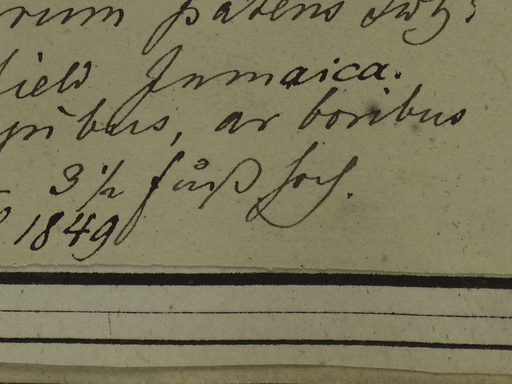 rum patens Sw.
field Jamaica.
pibus, arboribus
3 1/2 fuß hoch.
1849